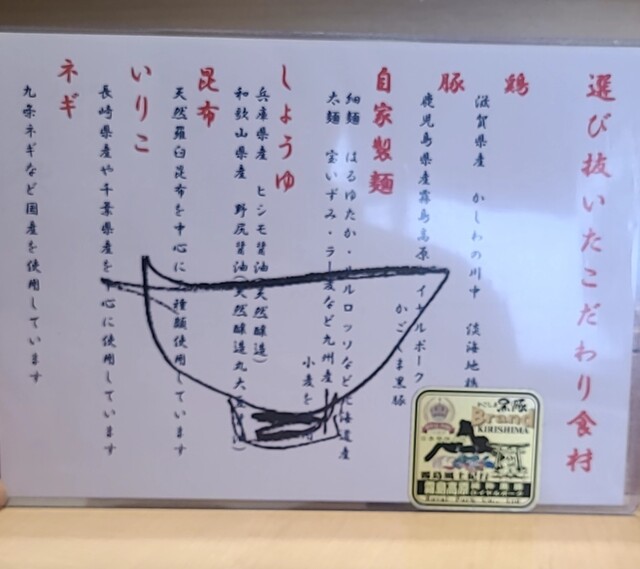 選び抜いたこだわり食材
鶏
滋賀県産 かしわの川中 淡海地鶏
豚
鹿児島県産霧島高原ロイヤルポーク
かごしま黒豚
自家製麺
細麺 はるゆたか・ 北海道産
太麺 宝いずみ・ラー麦など九州産
小麦を
しょうゆ
兵庫県産 ヒシモ醤油(天然醸造)
和歌山県産 野尻醤油(天然醸造丸大豆
昆布
天然羅臼昆布を中心に 種類使用しています
いりこ
長崎県産や千葉県産を中心に使用しています
ネギ
九条ネギなど国産を使用しています
かごしま黒豚
Brand
KIRISHIMA
霧島風土紀行
Royal Pork Co., Ltd.